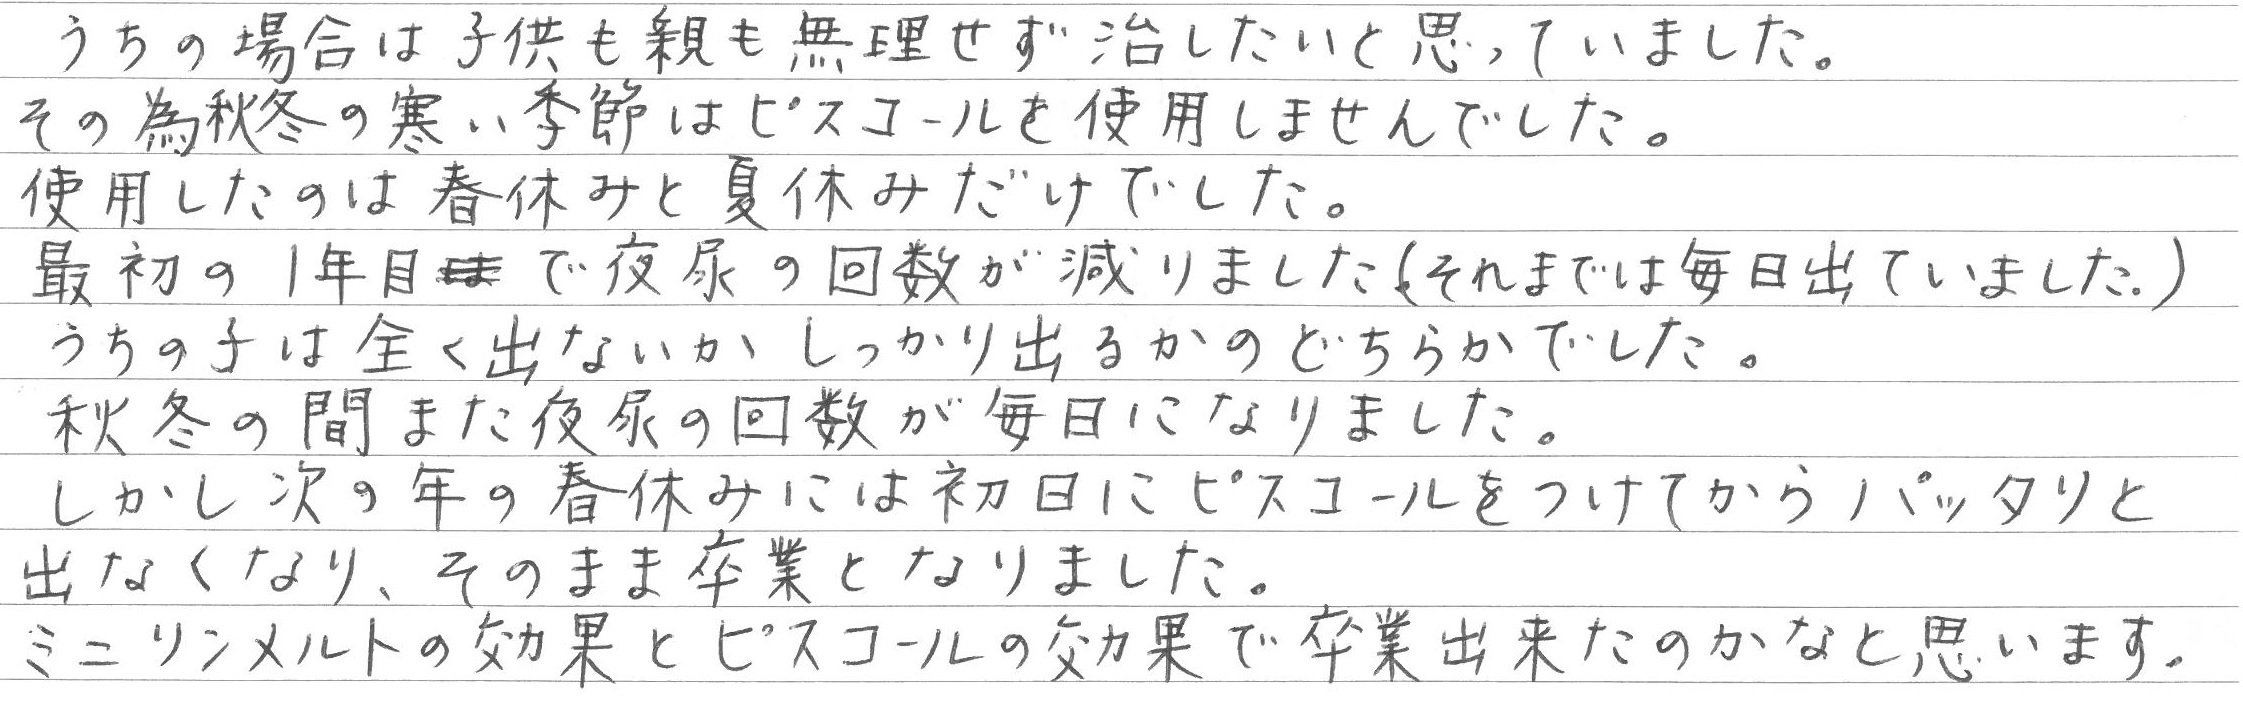 うちの場合は子供も親も無理せず治したいと思っていました。
その為秋冬の寒い季節はピスコールを使用しませんでした。
使用したのは春休みと夏休みだけでした。
最初の1年目で夜尿の回数が減りました(それまでは毎日出ていました。)
うちの子は全く出ないかしっかり出るかのどちらかでした。
秋冬の間また夜尿の回数が毎日になりました。
しかし次の年の春休みには初日にピスコールをつけてからパッタリと
出なくなり、そのまま卒業となりました。
ミニリンメルトの効果とピスコールの効果で卒業出来たのかなと思います。